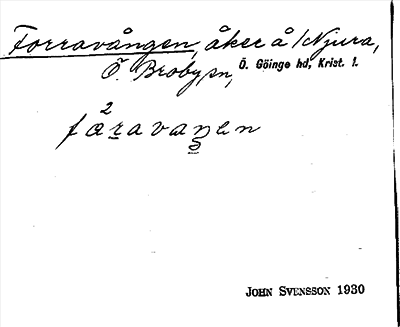 Forravången, åker å Njura,
Ö. Broby sn, Ö. Göinge hd, Krist. l.
2
fåravaŋen
5
JOHN SVENSSON 1930